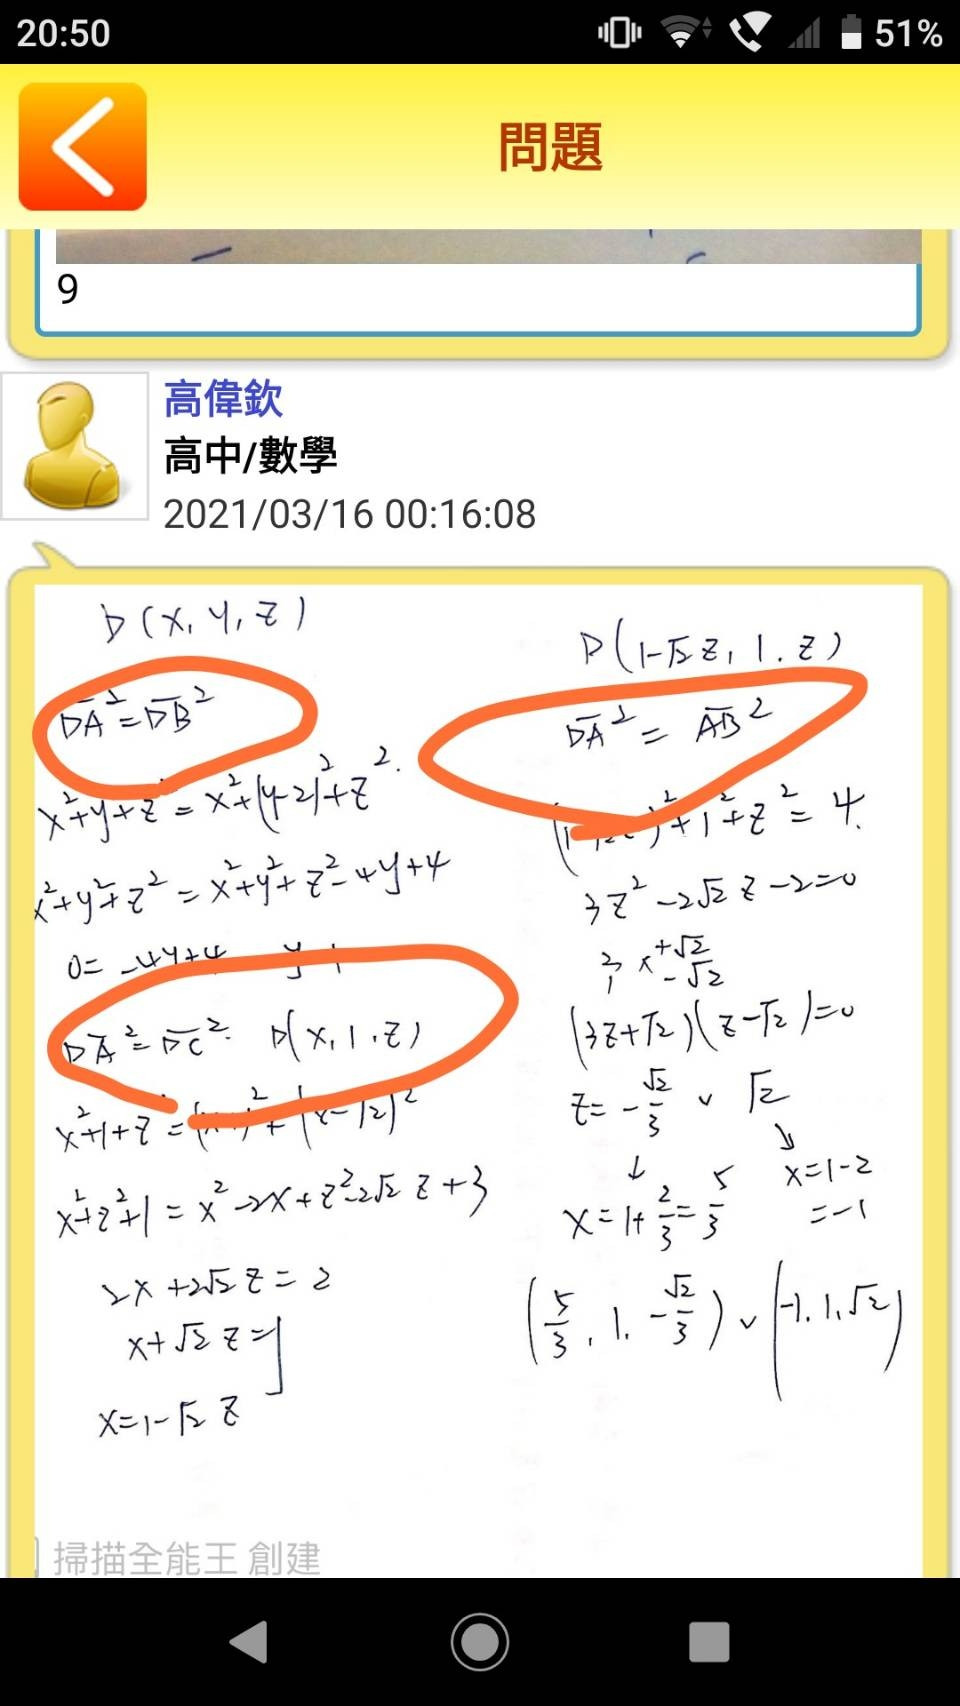 20:50
51%
問題
9
高偉欽
高中/數學
2021/03/16 00:16:08
D(x, y, z)
DA² = DB²
x²+y²+z² = x²+(y-2)²+z².
x²+y²+z² = x²+y²+z²-4y+4
0 = -4y+4
DA² = DC². D(x, 1, z)
x²+1+z² =
x²+z²+1 = x²-2x+z²-2√2 z+3
2x+2√2 z = 2
x+√2 z = 1
x=1-√2 z
D(1-√2 z, 1, z)
DA² = AB²
)²+1²+z² = 4.
3z²-2√2 z-2=0
3 +√2
1 -√2
(3z+√2)(z-√2)=0
z= -√2/3 ∨ √2
x=1+2/3=5/3
x=1-2
=-1
(5/3, 1, -√2/3) ∨ (-1, 1, √2)
掃描全能王 創建